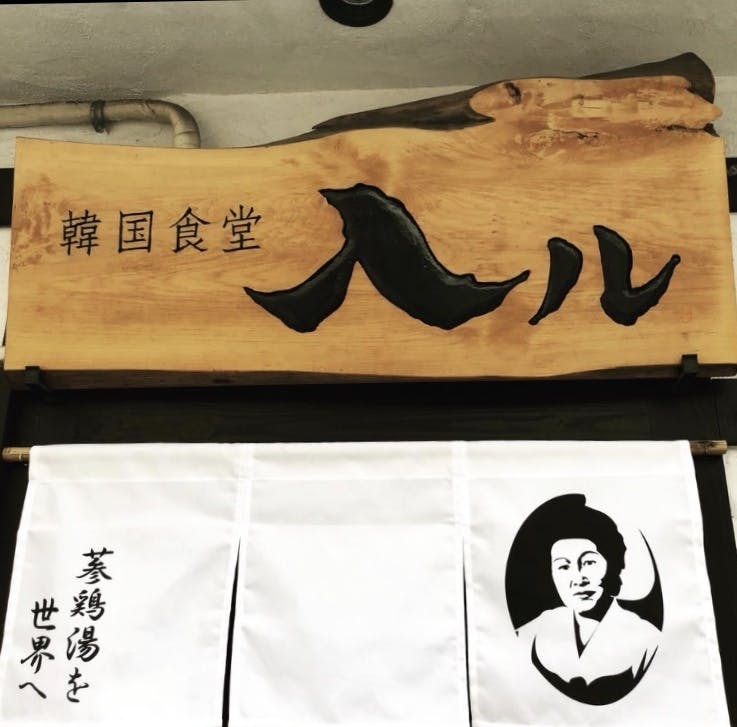 韓国食堂
入ル
蔘鶏湯を
世界へ